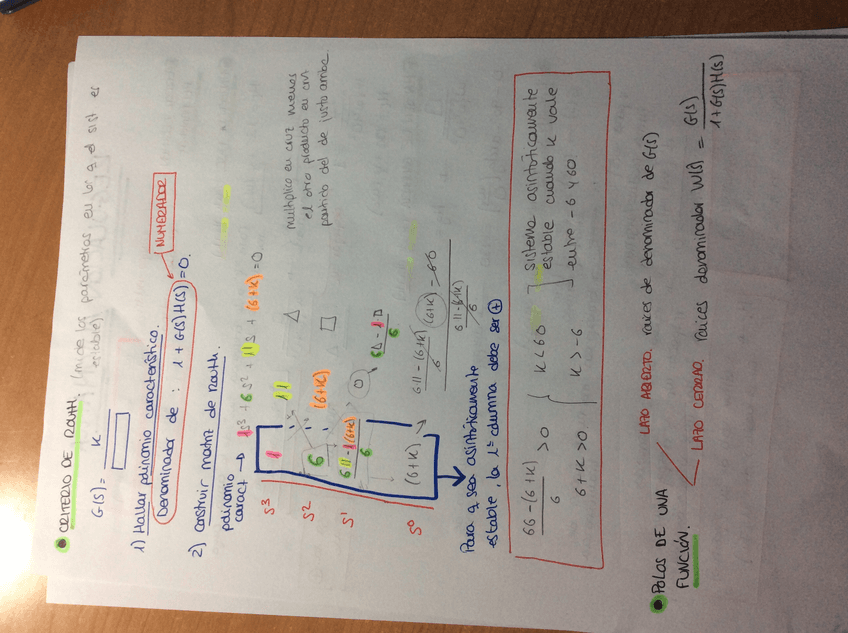 CRITERIO DE ROUTH. (mide los parámetros en los q el sist es
estable)
G(s) = K
1) Hallar polinomio característico.
Denominador de : 1 + G(s)H(s) = 0.
NUMERADOR
2) Construir matriz de Routh.
polinomio
caract → 1s³ + 6s² + 11s + (6+K) = 0.
s³ 1 11 △
s² 6 (6+K) □
s¹ 6·11 - 1·(6+K) / 6 0
s⁰ (6+K)
multiplico en cruz menos
el otro producto en cruz
partido del de justo arriba
6△ - 1·□ / 6
6·11 - (6+K) / 6 (6+K) - 6·0
6·11 - (6+K) / 6
Para q sea asintóticamente
estable, la 1ª columna debe ser ⊕
66 - (6+K) / 6 > 0 { K < 60
6+K > 0 K > -6
sistema asintóticamente
estable cuando K vale
entre -6 y 60.
POLOS DE UNA
FUNCIÓN.
LAZO ABIERTO. raíces de denominador de G(s)
LAZO CERRADO. raíces denominador W(s) = G(s) / 1 + G(s)H(s)